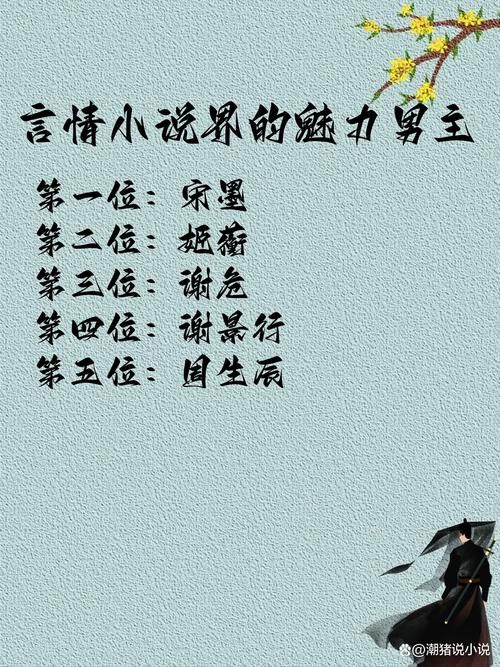 言情小说界的魅力男主
第一位：宋墨
第二位：姬蘅
第三位：谢危
第四位：谢景行
第五位：周生辰
@潮猪说小说